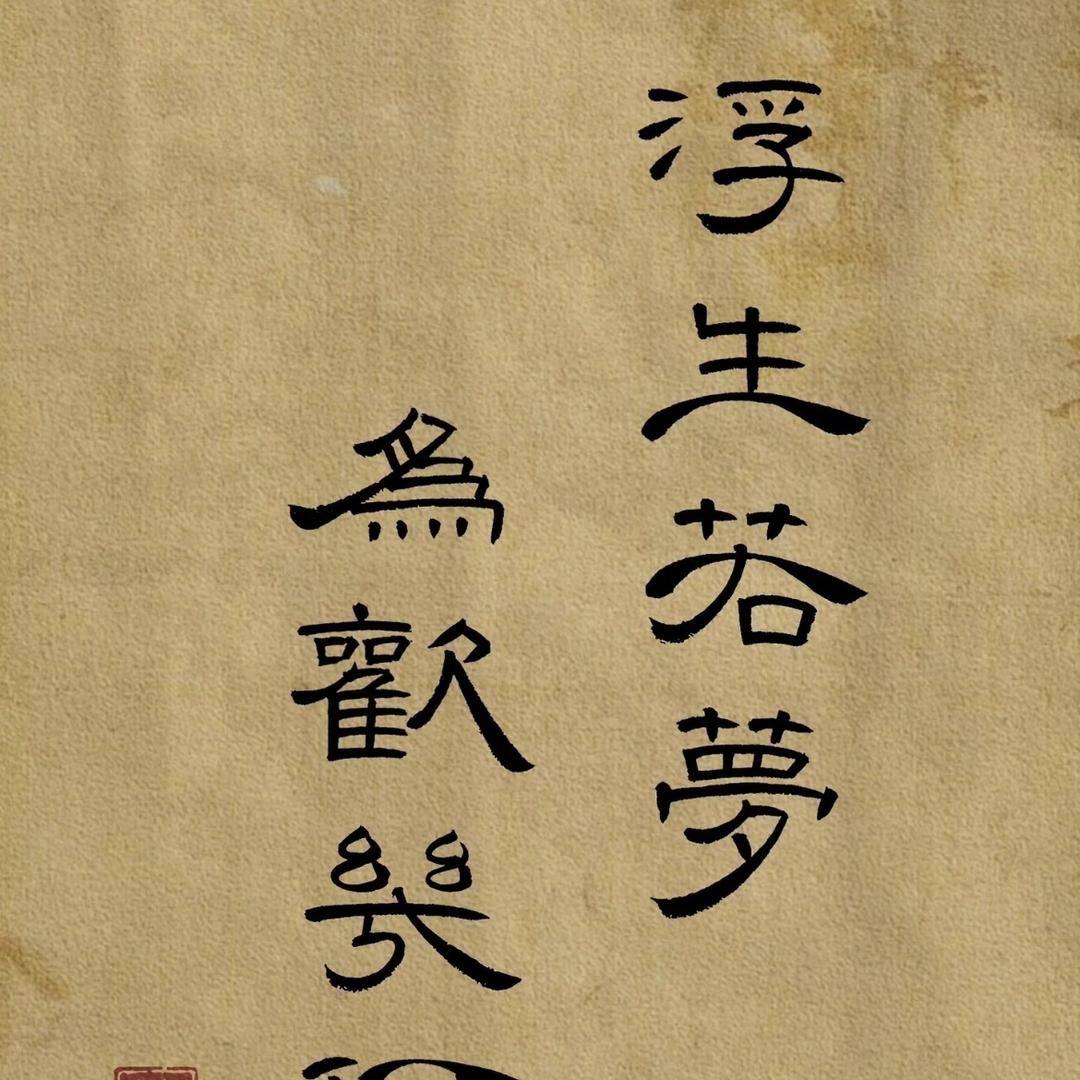 浮生若夢
為歡幾